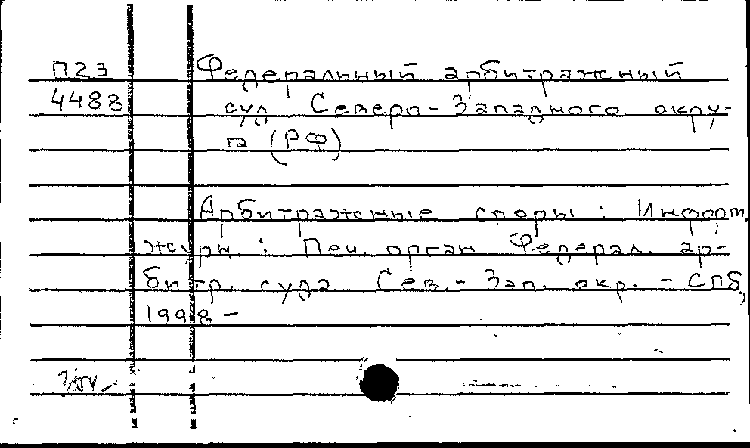 П23 Федеральный арбитражный
4488 суд Северо-Западного окру-
га (РФ)
Арбитражные споры : Информ.
журн. : Печ. орган Федерал. ар-
битр. суда Сев.-Зап. окр. - СПб,
1998 -